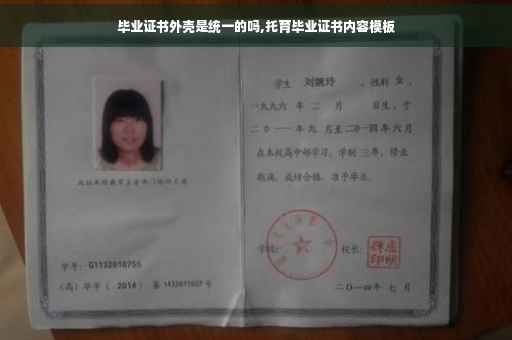 毕业证书外壳是统一的吗,托育毕业证书内容模板
学生 刘婉玲 ,性别 女 ,
一九九六 年 二 月 日生,于
二〇一一年九 月至二〇一四年六月
在本校高中部学习,学制 三年,修业
期满,成绩合格,准予毕业。
学号: G1132010755
(高) 毕字( 2014 ) 第 1432011027 号
学校:
校长:
二〇一四年 七 月